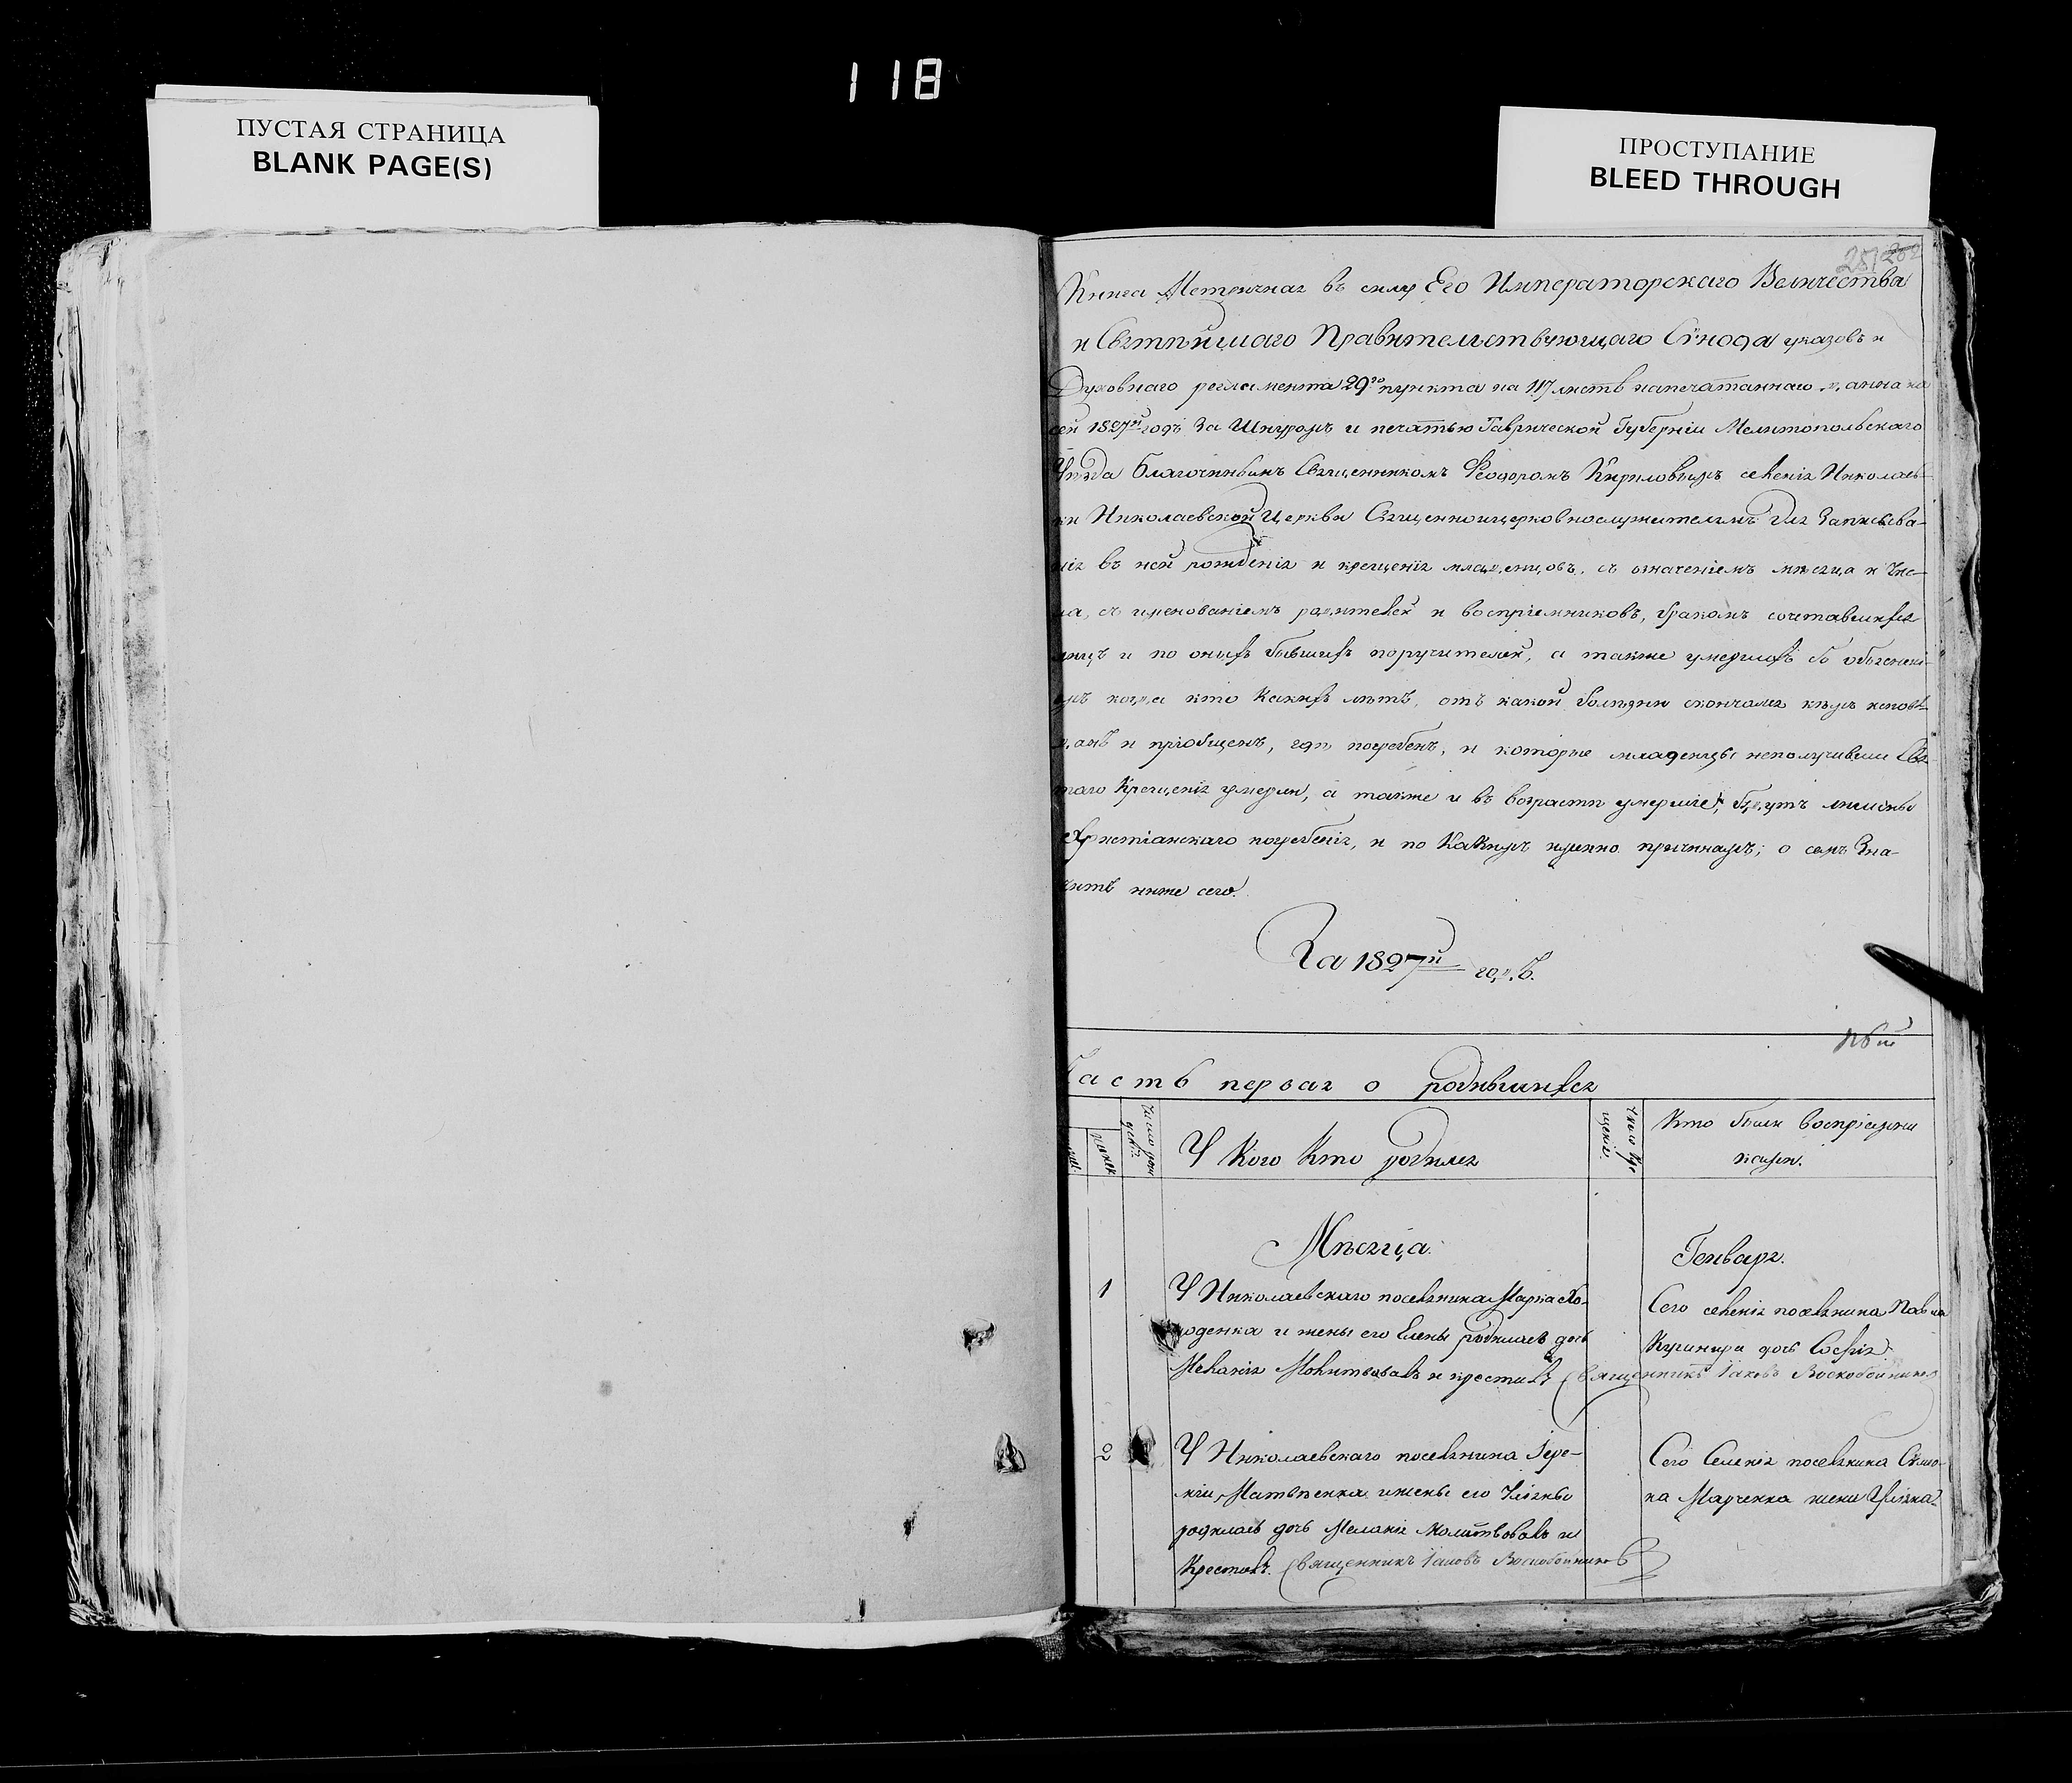 118
ПУСТАЯ СТРАНИЦА
BLANK PAGE(S)
ПРОСТУПАНИЕ
BLEED THROUGH
Книга Метричная въ силу Его Императорскаго Величества
и Святѣйшаго Правительствующаго Сѵнода указовъ и
Духовнаго регламента 29го пункта на 117 листѣ напечатаннаго, данна на
сей 1827й годъ За Шнуромъ и печатью Таврической Губерніи Мелитопольскаго
Уѣзда Благочиннымъ Священникомъ Феодоромъ Кириловымъ селенія Николаев-
ки Николаевской Церкви Священноицерковнослужителямъ для Записыва-
нія въ ней рожденія и крещенія младенцовъ, съ означеніемъ мѣсяца и Чис-
ла, съ именованіемъ родителей и воспріемниковъ, бракомъ сочетавшихся
лицъ и по оныхъ бывшихъ поручителей, а также умершихъ со объясненi-
емъ когда кто Какихъ лѣтъ, отъ какой болѣзни скончался кѣмъ исповѣ-
данъ и пріобщенъ, гдѣ погребенъ, и которые младенцы неполучивши Свя-
таго Крещенія умерли, а также и въ возрастѣ умершіе, будутъ лишены
Христіанскаго погребенія, и по Какимъ имянно причинамъ; о семъ Зна-
читъ ниже сего.
За 1827й годъ.
Часть первая о родившихся
У Кого Кто родился
Кто были воспріемни
ками.
Мѣсяца
Генваря.
1
У Николаевскаго поселянина Марка Хо-
лоденка и жены его Елены родилась дочь
Меланія Молитвовалъ и крестилъ Священникъ Іаковъ Воскобойников
Сего селенія поселянина Павла
Кушнира дочь Софія
2
У Николаевскаго поселянина Іере-
міи Матвѣенка и жены его Уліяны
родилась дочь Меланія Молитвовалъ и
Крестилъ. Священникъ Іаковъ Воскобойников
Сего Селенія поселянина Симо-
на Марченка жена Уліяна